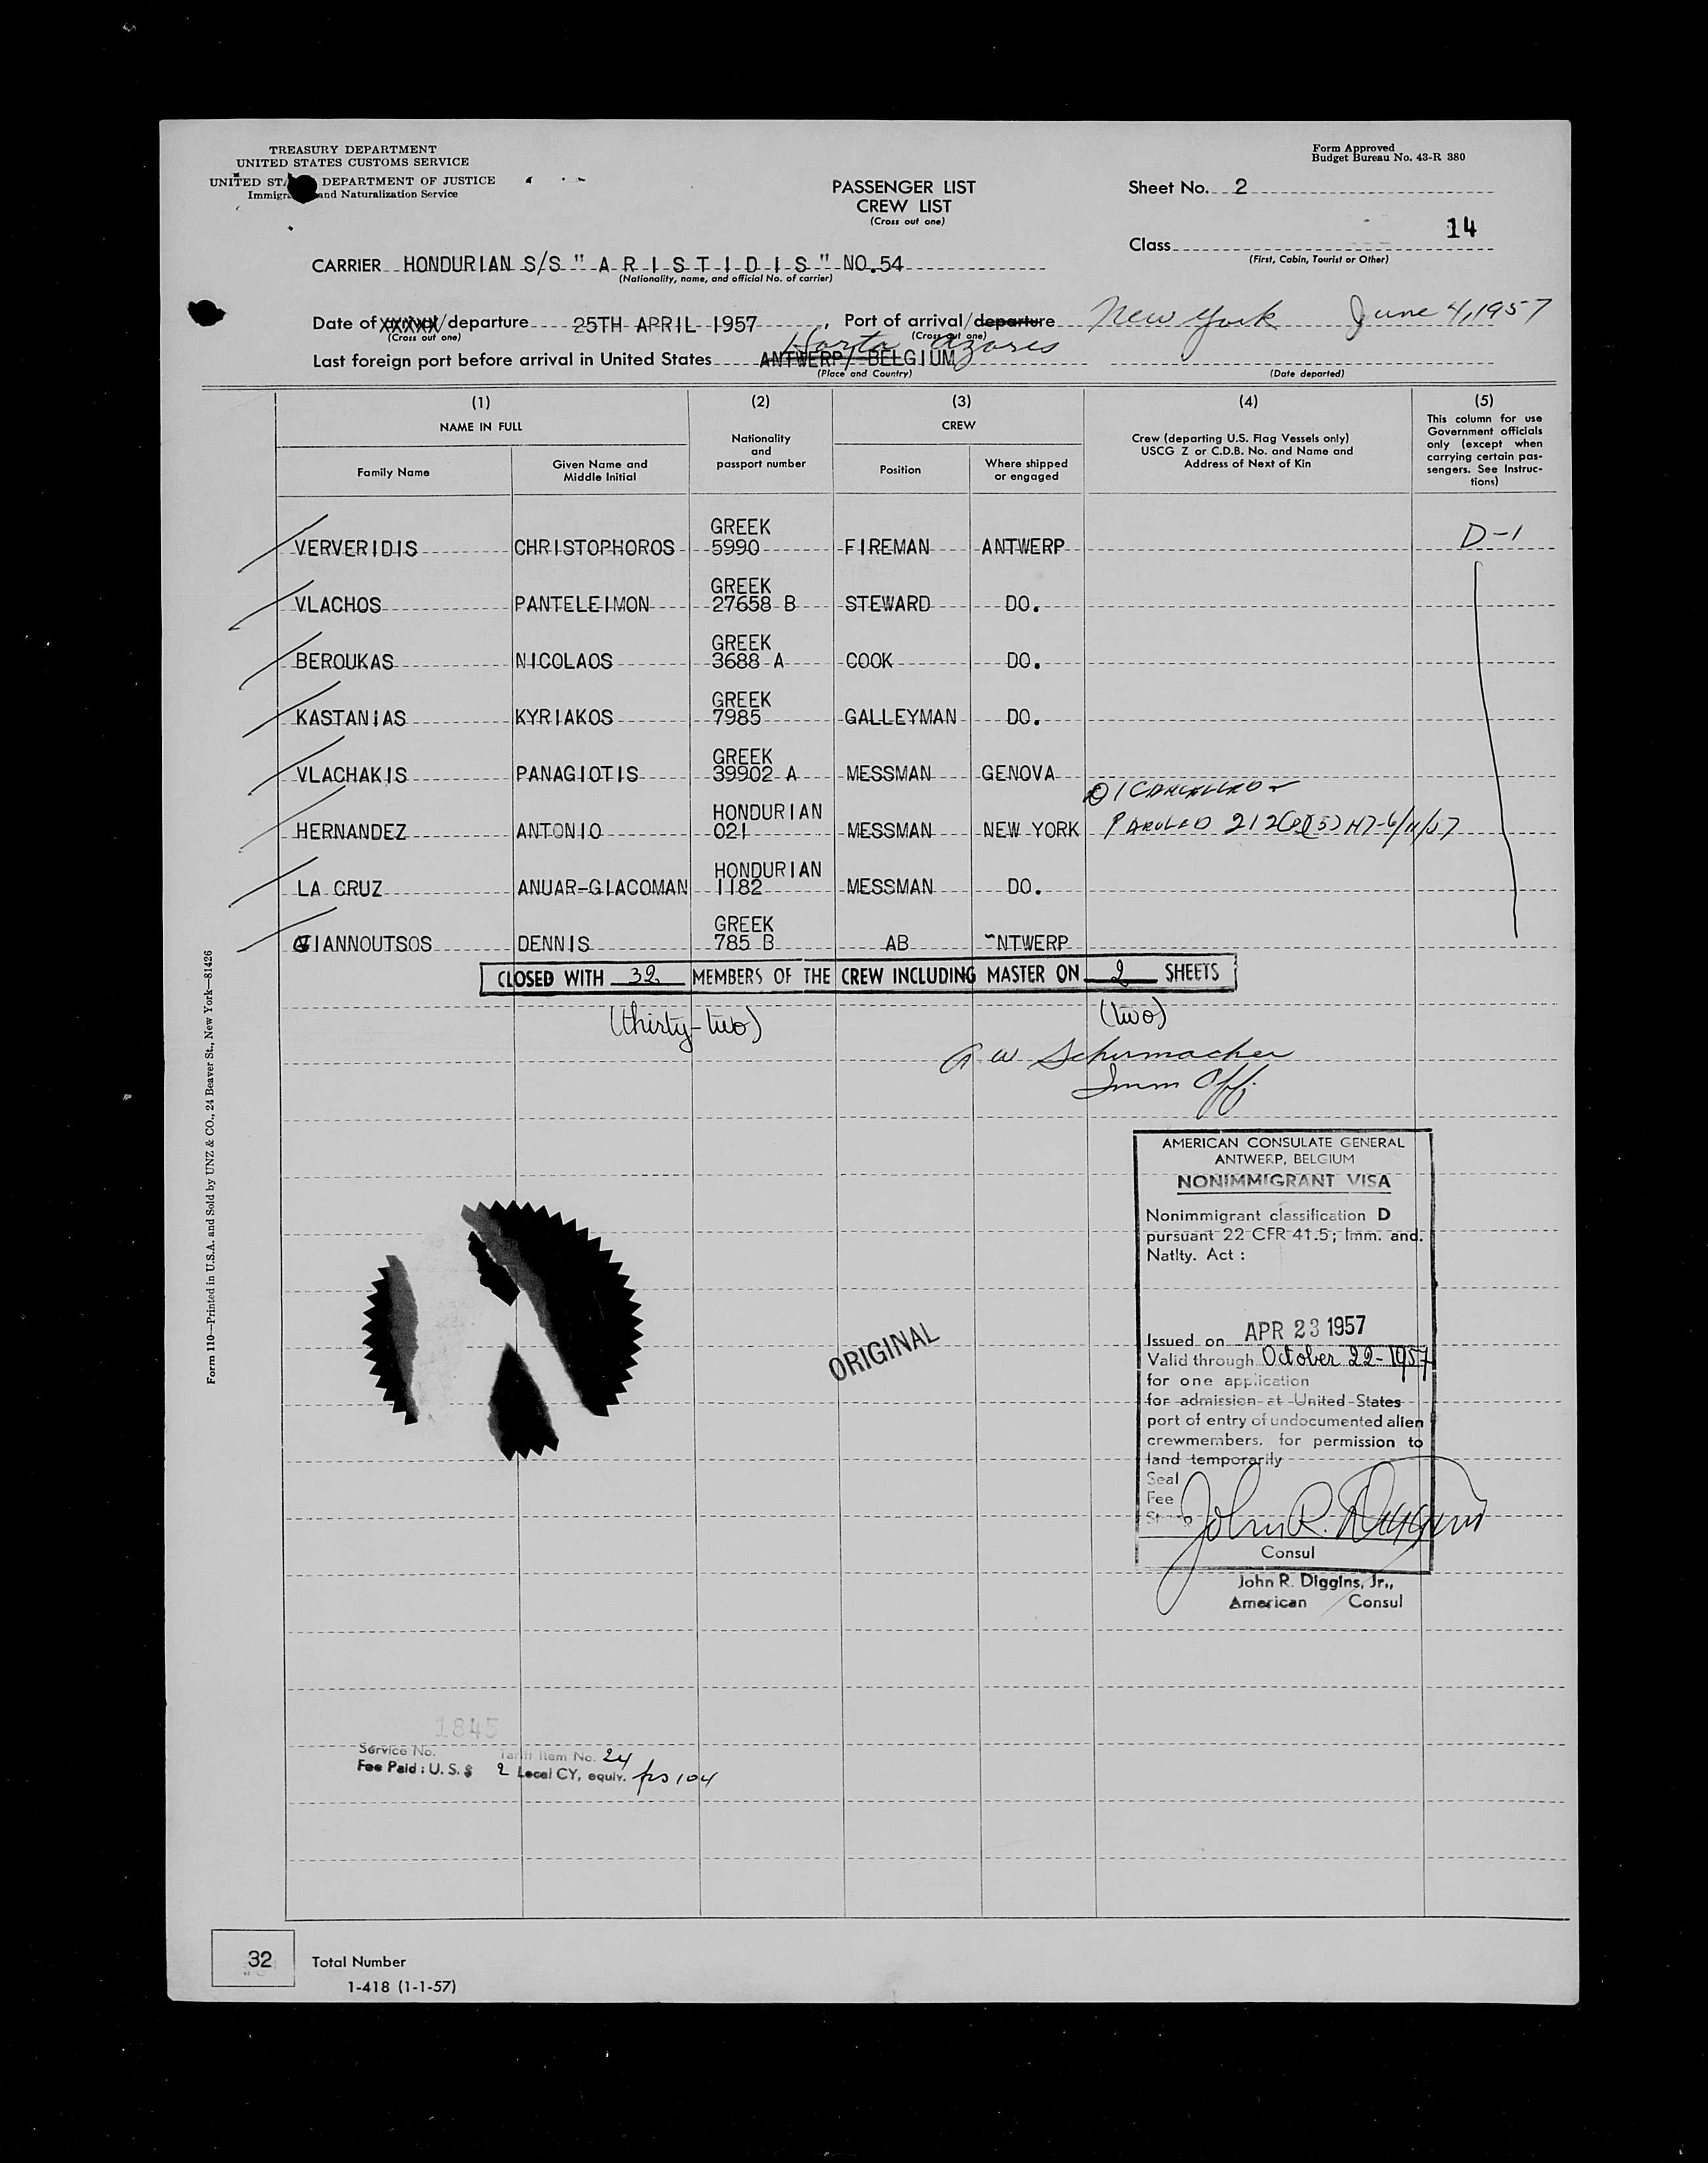 TREASURY DEPARTMENT
UNITED STATES CUSTOMS SERVICE
UNITED ST DEPARTMENT OF JUSTICE
Immigra and Naturalization Service
Form Approved
Budget Bureau No. 43-R 380
PASSENGER LIST
CREW LIST
(Cross out one)
Sheet No. 2
14
Class
(First, Cabin, Tourist or Other)
CARRIER HONDURIAN S/S " A R I S T I D I S " NO.54
(Nationality, name, and official No. of carrier)
Date of XXXXX/departure 25TH APRIL 1957, Port of arrival/departure New York June 4, 1957
(Cross out one) (Cross out one)
Horta Azores
Last foreign port before arrival in United States ANTWERP/ BELGIUM
(Place and Country) (Date departed)
(1) (2) (3) (4) (5)
NAME IN FULL
Family Name
Given Name and Middle Initial
Nationality and passport number
CREW
Position
Where shipped or engaged
Crew (departing U.S. Flag Vessels only)
USCG Z or C.D.B. No. and Name and
Address of Next of Kin
This column for use
Government officials
only (except when
carrying certain pas-
sengers. See Instruc-
tions)
GREEK
VERVERIDIS CHRISTOPHOROS 5990 FIREMAN ANTWERP D-1
GREEK
VLACHOS PANTELEIMON 27658 B STEWARD DO.
GREEK
BEROUKAS NICOLAOS 3688 A COOK DO.
GREEK
KASTANIAS KYRIAKOS 7985 GALLEYMAN DO.
GREEK
VLACHAKIS PANAGIOTIS 39902 A MESSMAN GENOVA
D1 CANCELLED
HONDURIAN
HERNANDEZ ANTONIO 021 MESSMAN NEW YORK PAROLED 212(d)(5) 6/11/57
HONDURIAN
LA CRUZ ANUAR-GIACOMAN 1182 MESSMAN DO.
GREEK
GIANNOUTSOS DENNIS 785 B AB NTWERP
CLOSED WITH 32 MEMBERS OF THE CREW INCLUDING MASTER ON 2 SHEETS
(thirty-two) (two)
A W Schumacher
Imm Off.
AMERICAN CONSULATE GENERAL
ANTWERP, BELGIUM
NONIMMIGRANT VISA
Nonimmigrant classification D
pursuant 22 CFR 41.5; Imm. and.
Natlty. Act :
Issued on APR 23 1957
Valid through October 22-1957
for one application
for admission at United States
port of entry of undocumented alien
crewmembers, for permission to
land temporarily
Seal
Fee
Stamp
John R. Diggins
Consul
John R. Diggins, Jr.,
American Consul
ORIGINAL
1845
Service No. Tariff Item No. 24
Fee Paid : U. S. $ 2 Local CY, equiv. frs 104
32 Total Number
1-418 (1-1-57)
Form 110—Printed in U.S.A. and Sold by UNZ & CO., 24 Beaver St., New York—81426